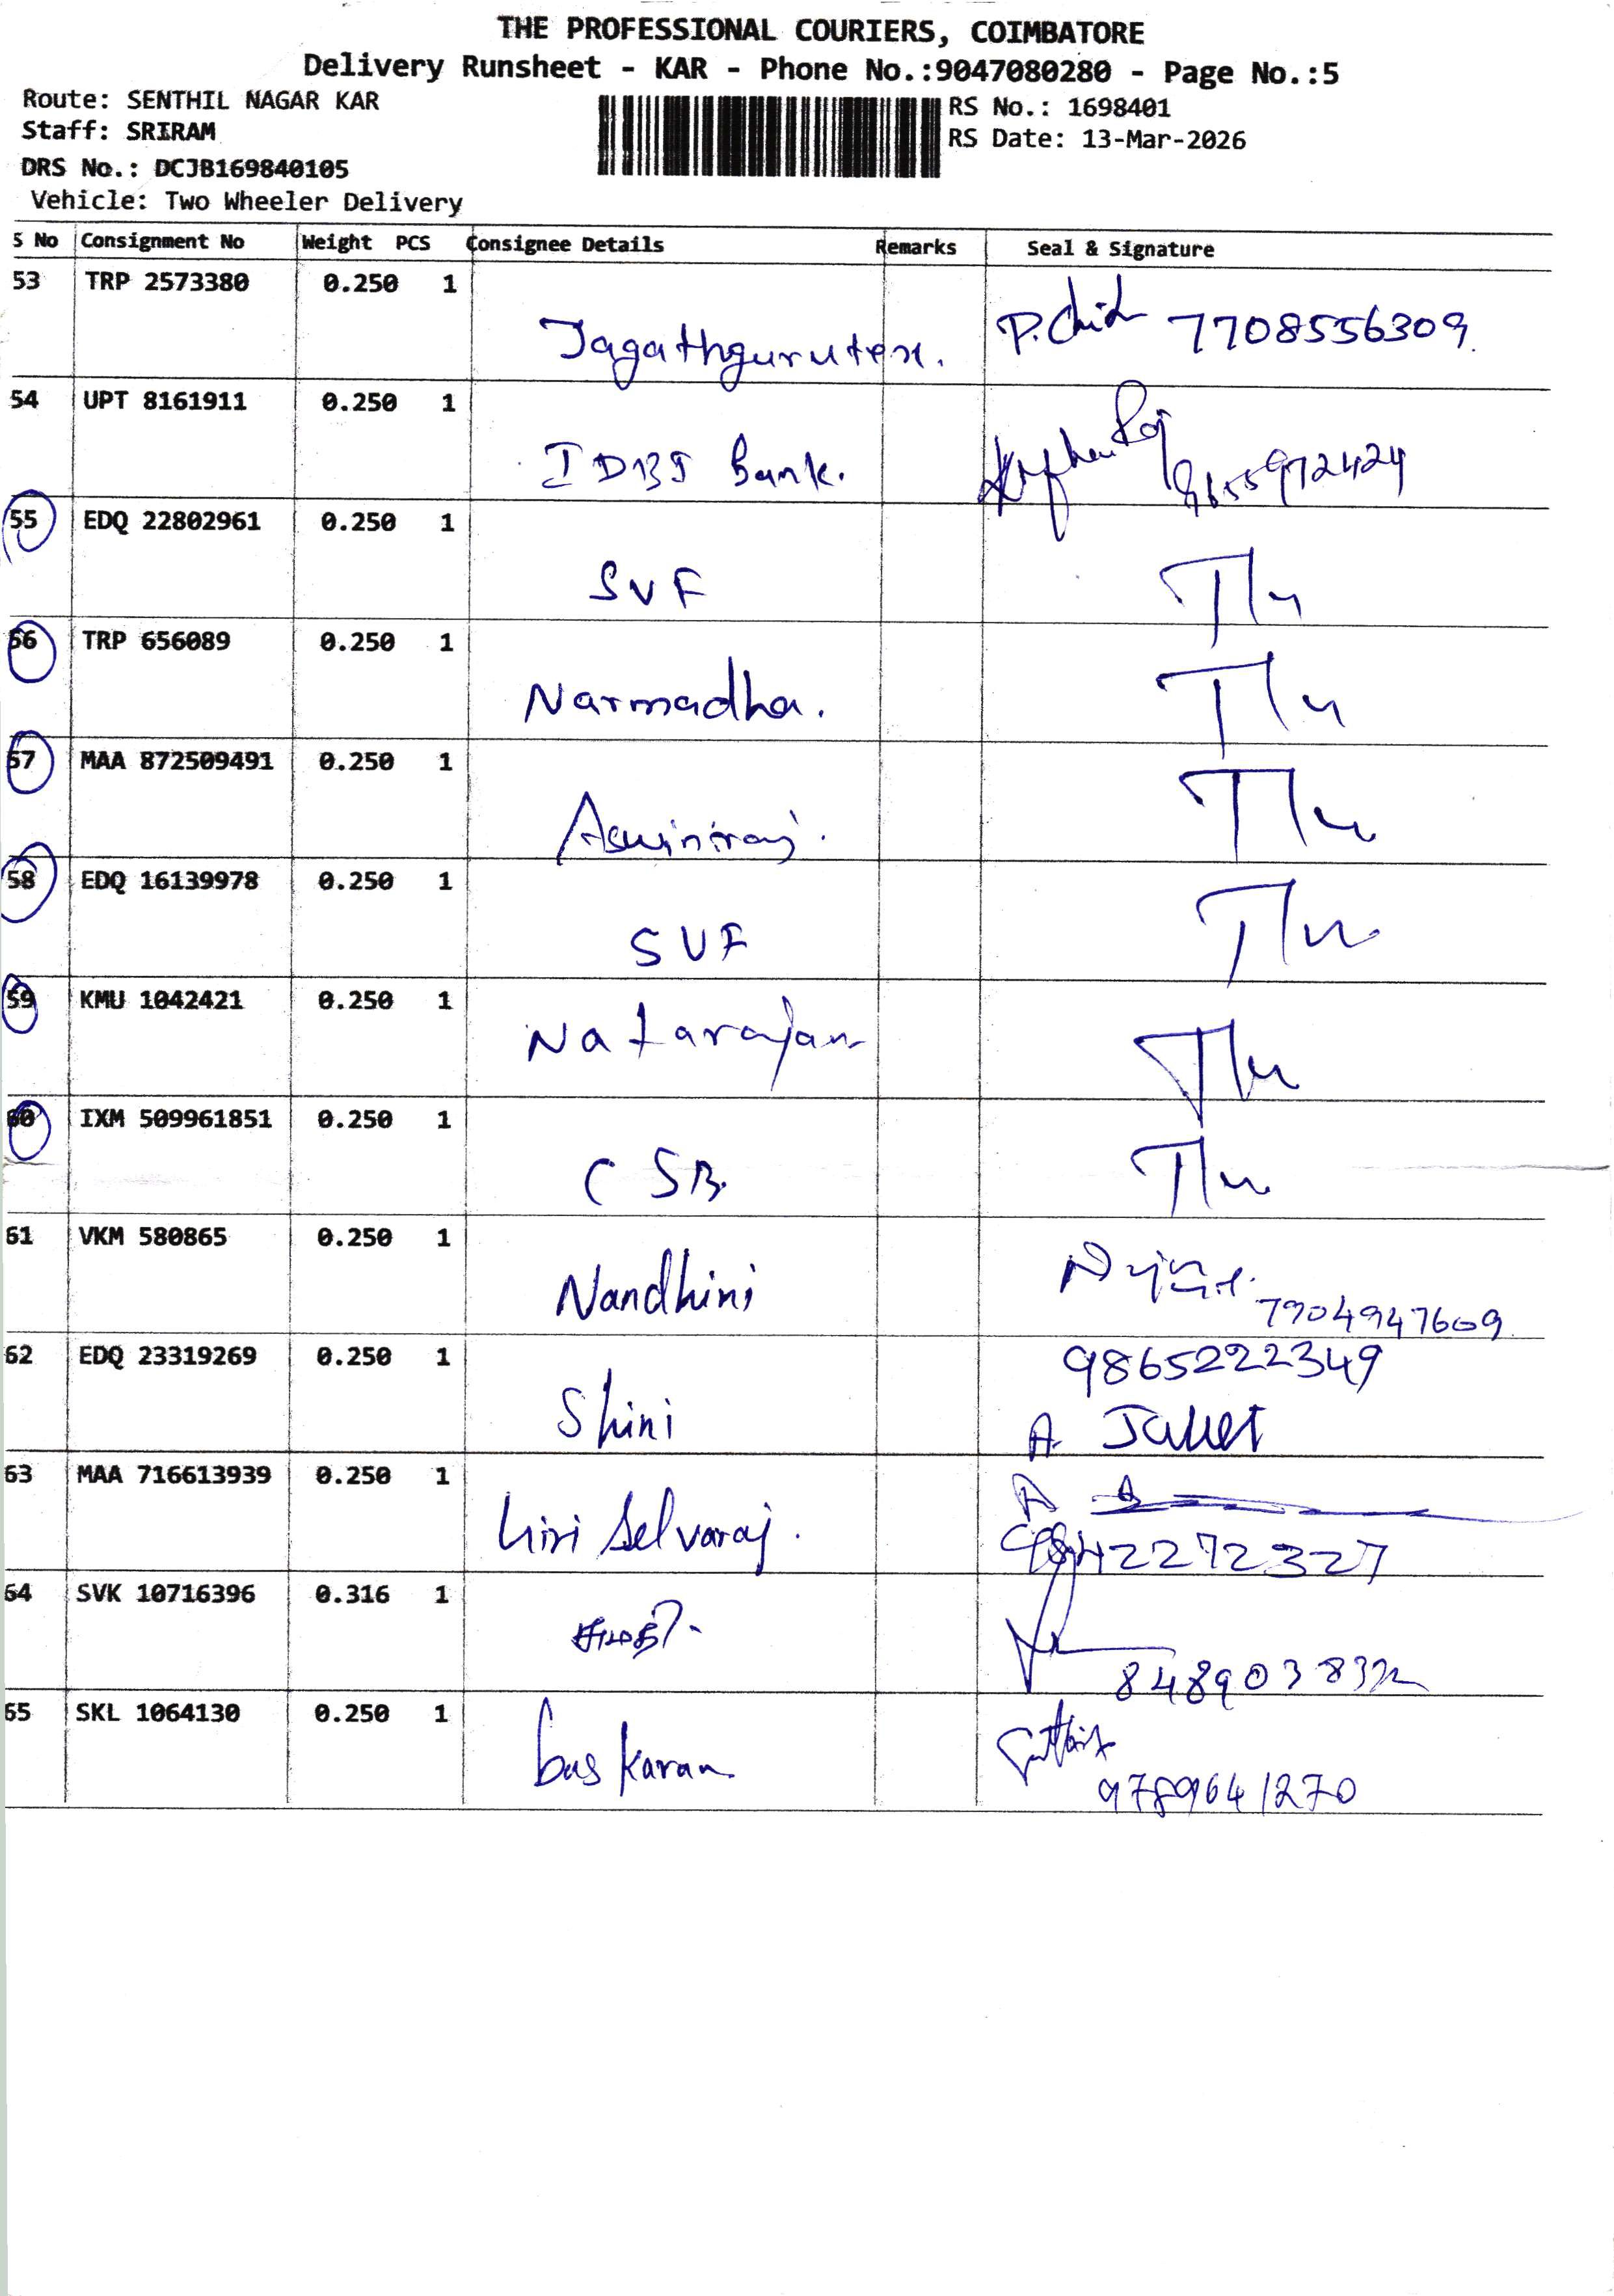 THE PROFESSIONAL COURIERS, COIMBATORE
Delivery Runsheet - KAR - Phone No.:9047080280 - Page No.:5
Route: SENTHIL NAGAR KAR
RS No.: 1698401
Staff: SRIRAM
RS Date: 13-Mar-2026
DRS No.: DCJB169840105
Vehicle: Two Wheeler Delivery
S No Consignment No Weight PCS Consignee Details Remarks Seal & Signature
53 TRP 2573380 0.250 1
Jagathgurutex. 7708556309
54 UPT 8161911 0.250 1
IDBI Bank. 9655972424
55 EDQ 22802961 0.250 1
SVF
56 TRP 656089 0.250 1
Narmadha.
57 MAA 872509491 0.250 1
Aswiniraj.
58 EDQ 16139978 0.250 1
SVF
59 KMU 1042421 0.250 1
Natarajan
60 IXM 509961851 0.250 1
CSB.
61 VKM 580865 0.250 1
Nandhini
7904947609
62 EDQ 23319269 0.250 1 9865222349
Shini A.
63 MAA 716613939 0.250 1
Selvaraj. 9842272327
64 SVK 10716396 0.316 1
65 SKL 1064130 0.250 1
baskaran
9789641270